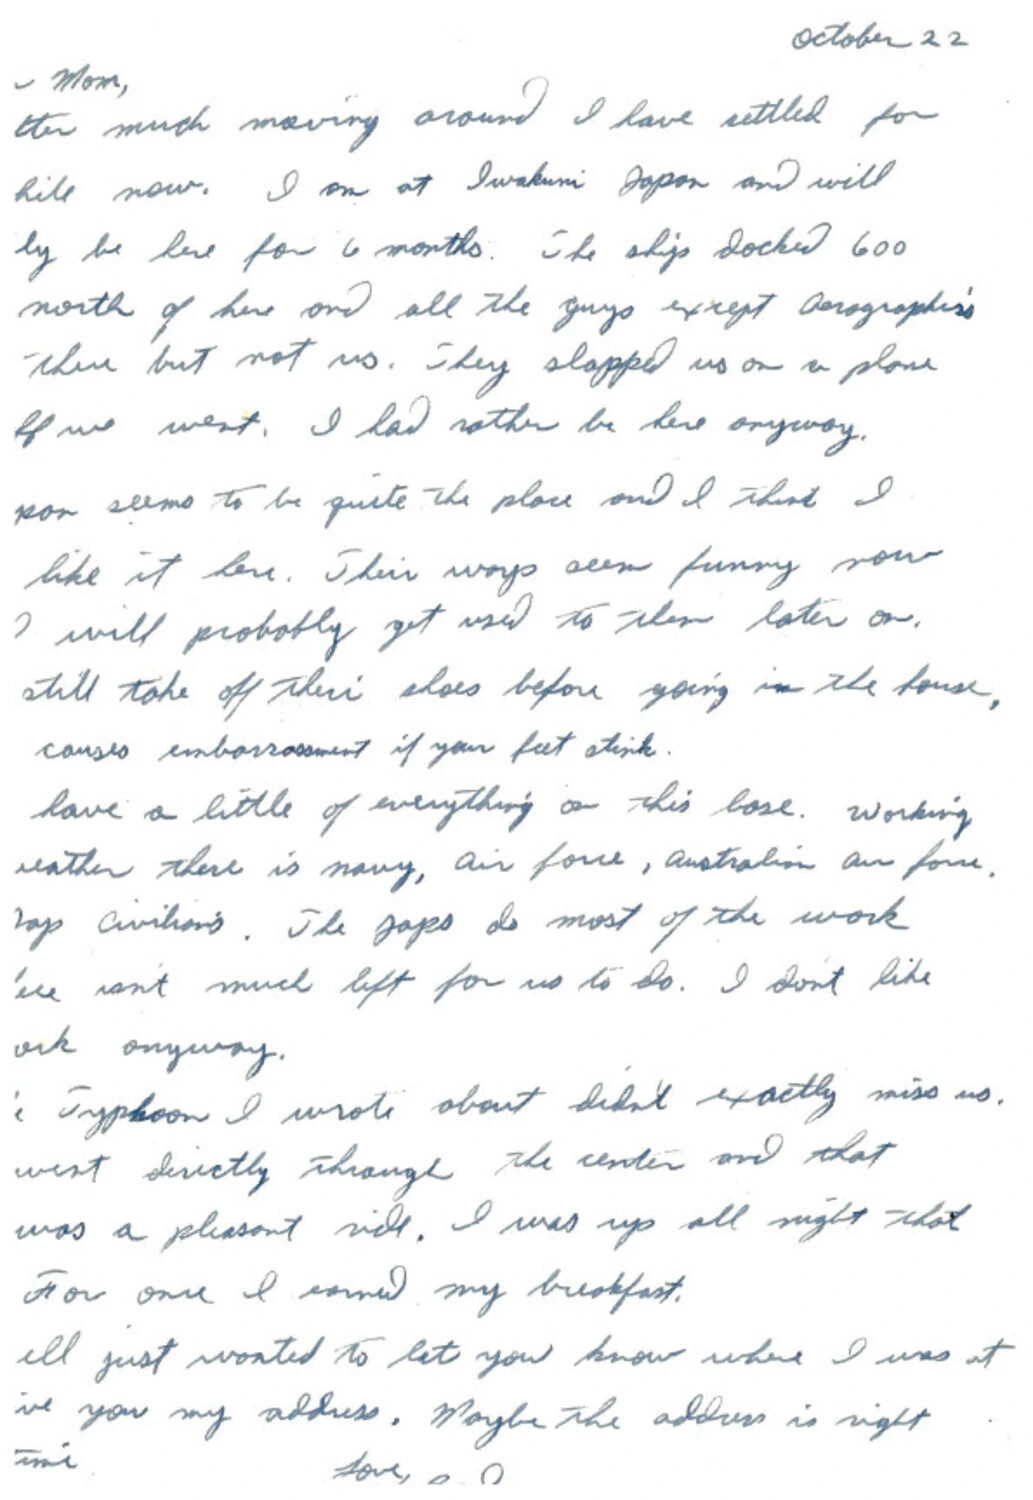 October 22
Mom,
tter much moving around I have settled for
hile now. I am at Iwakuni Japan and will
ly be here for 6 months. The ships docked 600
north of here and all the guys except Aerographers
there but not us. They slapped us on a plane
ff we went. I had rather be here anyway.
pan seems to be quite the place and I think I
like it here. Their ways seem funny now
I will probably get used to them later on.
still take off their shoes before going in the house,
causes embarrassment if your feet stink.
have a little of everything on this base. Working
eather there is navy, air force, Australian air force.
Jap Civilians. The Japs do most of the work
ere isn't much left for us to do. I don't like
ork anyway.
e Typhoon I wrote about didn't exactly miss us.
went directly through the center and that
was a pleasant ride. I was up all night that
For once I earned my breakfast.
ell just wanted to let you know where I was at
ive you my address. Maybe the address is right
time
Love,